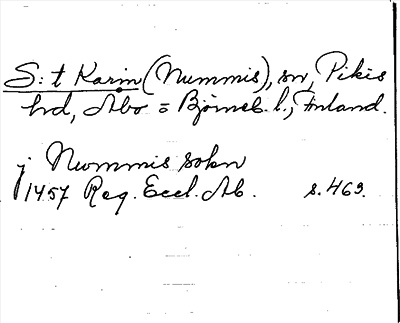 S:t Karin (Nummis), sn, Pikis
hd, Åbo = Björneb. l., Finland.
j Nummis sokn
1457 Reg. Eccl. Ab. s. 463.